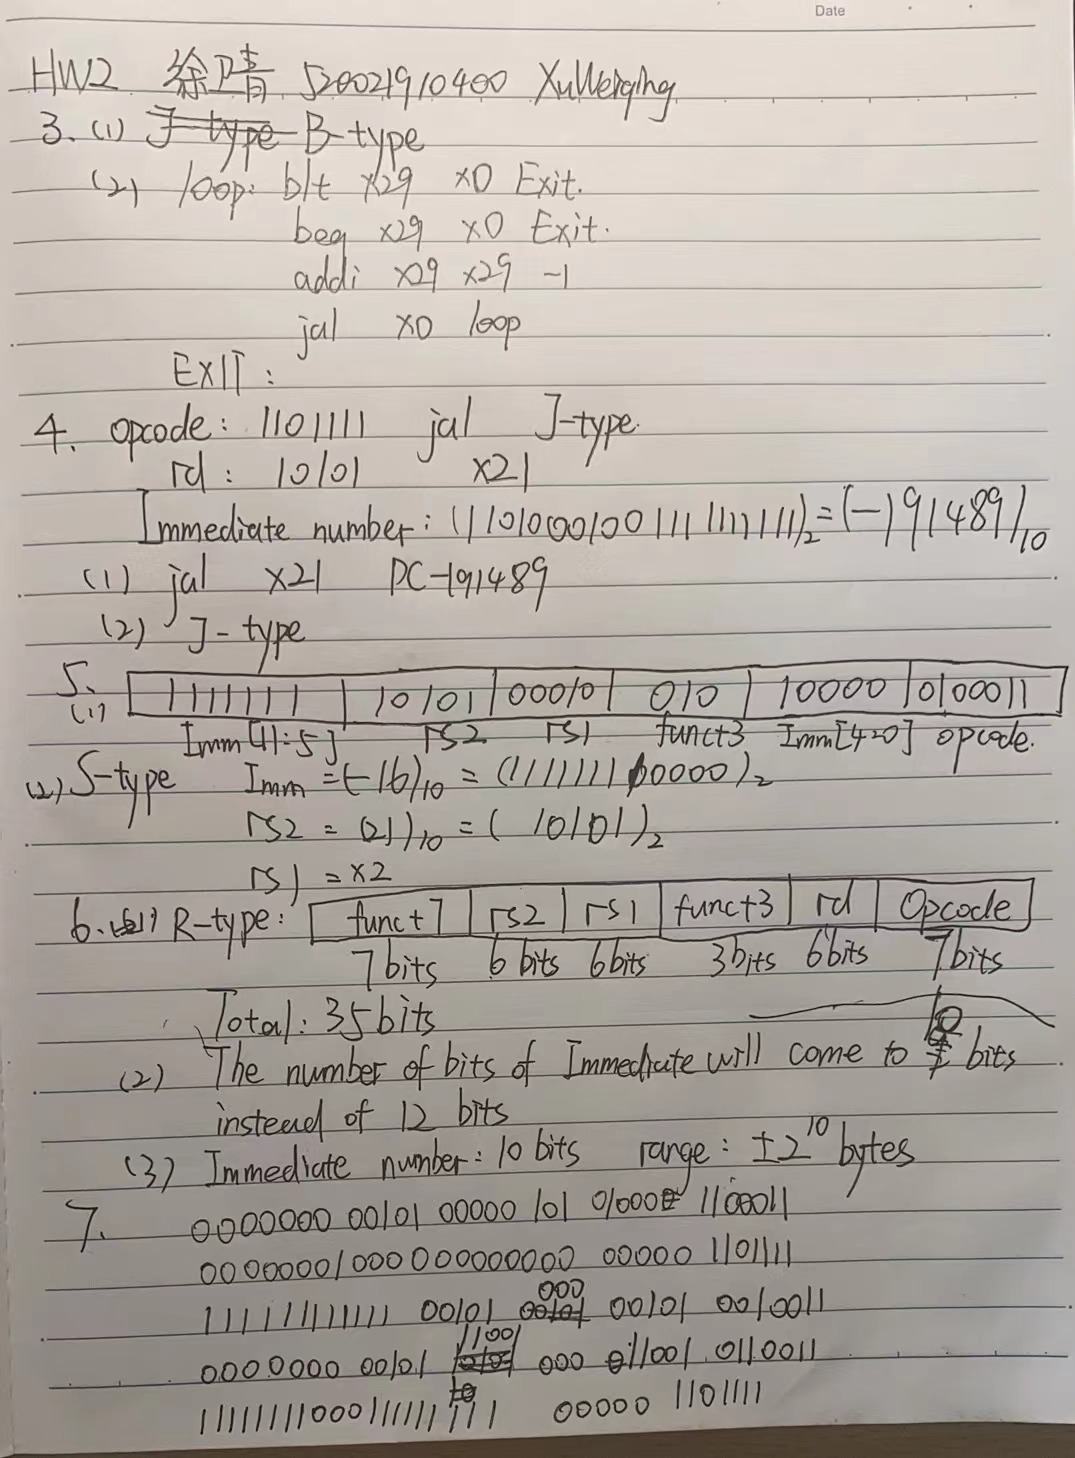 Date
HW2 徐卫晴 520021910400 XuWeiqing
3. (1) J-type B-type
(2) loop: blt x29 x0 Exit.
beq x29 x0 Exit.
addi x29 x29 -1
jal x0 loop
EXIT:
4. opcode: 1101111 jal J-type.
rd: 10101 x21
Immediate number: (11010001001111111111)₂=(-191489)₁₀
(1) jal x21 PC-191489
(2) J-type
5. (1) 1111111 10101 00010 010 10000 0100011
Imm[11:5] rs2 rs1 funct3 Imm[4:0] opcode.
(2) S-type Imm=(-16)₁₀=(111111110000)₂
rs2 = (21)₁₀ = (10101)₂
rs1 = x2
6. (1) R-type: funct7 rs2 rs1 funct3 rd Opcode
7bits 6bits 6bits 3bits 6bits 7bits
Total: 35bits
(2) The number of bits of Immediate will come to 10 bits
instead of 12 bits
(3) Immediate number: 10 bits range: ±2¹⁰ bytes
7. 0000000 00101 00000 101 01000 1100011
00000001000000000000 00000 1101111
111111111111 00101 000 00101 0010011
0000000 00101 11001 000 11001 0110011
00000 1101111